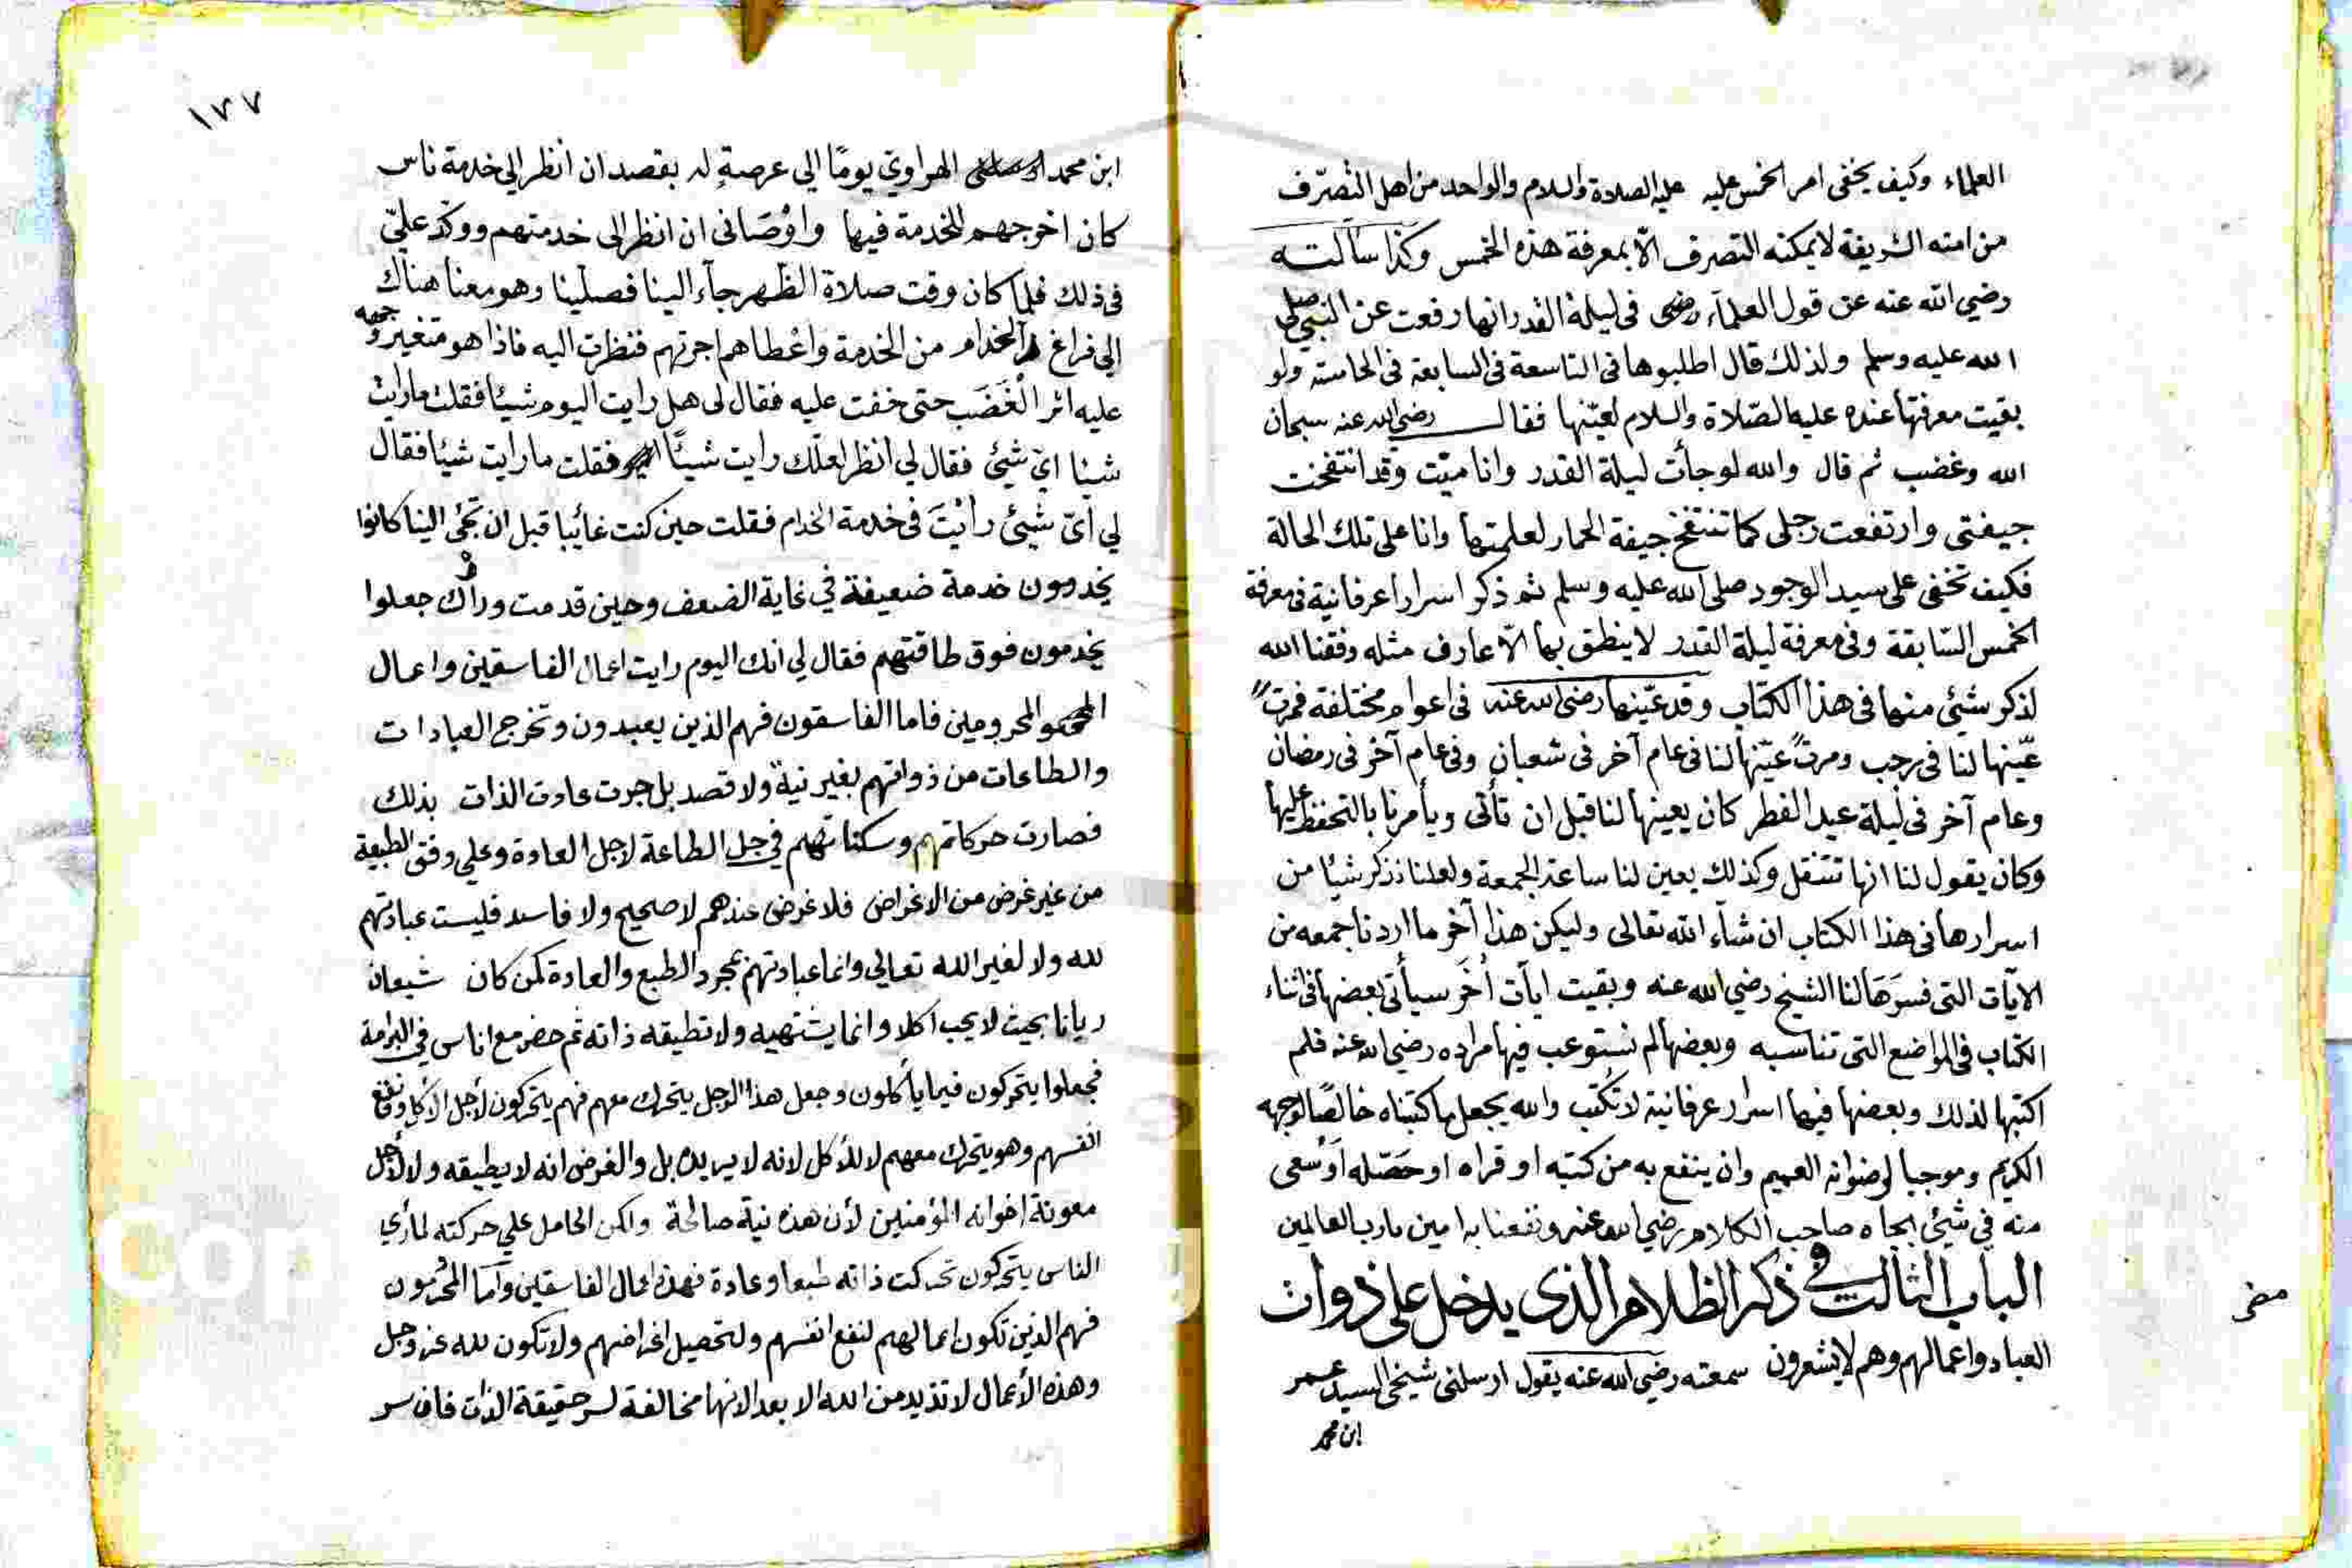 العلماء وكيف يخفى امر الخمس عليه عليه الصلاة والسلام والواحد من اهل التصرف
من امته الشريفة لا يمكنه التصرف الا بمعرفة هذه الخمس وكذا سألته
رضي الله عنه عن قول العلماء رضى فى ليلة القدر انها رفعت عن النبي صلى
الله عليه وسلم ولذلك قال اطلبوها فى التاسعة فى السابعة فى الخامسة ولو
بقيت معرفتها عنده عليه الصلاة والسلام لعينها فقال رضي الله عنه سبحان
الله وغضب ثم قال والله لو جأت ليلة القدر وانا ميت وقد انتفخت
جيفتى وارتفعت رجلى كما تنتفخ جيفة الحمار لعلمتها وانا على تلك الحالة
فكيف تخفى على سيد الوجود صلى الله عليه وسلم ثم ذكر اسرارا عرفانية فى معرفة
الخمس السابقة وفى معرفة ليلة القدر لا ينطق بها الا عارف مثله وفقنا الله
لذكر شيئ منها فى هذا الكتاب وقد عينها رضى الله عنه فى اعوام مختلفة فمرة
عينها لنا فى رجب ومرة عينها لنا فى عام آخر فى شعبان وفى عام آخر فى رمضان
وعام آخر فى ليلة عيد الفطر كان يعينها لنا قبل ان تأتى ويأمرنا بالتحفظ عليها
وكان يقول لنا انها تنتقل وكذلك يعين لنا ساعة الجمعة ولعلنا نذكر شيئا من
اسرارها فى هذا الكتاب ان شآء الله تعالى وليكن هذا آخر ما اردنا جمعه من
الآيات التى فسرها لنا الشيخ رضي الله عنه وبقيت ايآت أخر سيأتى بعضها فى اثناء
الكتاب فى المواضع التى تناسبه وبعضها لم نستوعب فيها مراده رضي الله عنه فلم
اكتبها لذلك وبعضها فيها اسرار عرفانية لا تكتب والله يجعل ما كتبناه خالصا لوجهه
الكريم وموجبا لرضوانه العميم وان ينفع به من كتبه او قراه او حصله او سعى
منه في شيئ بجاه صاحب الكلام رضي الله عنه ونفعنا به امين يا رب العالمين
الباب الثالث في ذكر الظلام الذى يدخل على ذوات
العباد واعمالهم وهم لا يشعرون سمعته رضي الله عنه يقول ارسلنى شيخي السيد عمر
ابن محمد
١٧٧
ابن محمد الهراوي يومًا الي عرصةٍ له بقصد ان انظر الي خدمة ناس
كان اخرجهم للخدمة فيها واوْصَانى ان انظر الى خدمتهم ووكد عليّ
فى ذلك فلما كان وقت صلاة الظهر جآء الينا فصلينا وهو معنا هناك
الي فراغ الخدام من الخدمة واعْطاهم اجرتهم فنظرت اليه فاذا هو متغير وجهه
عليه اثر الْغَضَب حتى خفت عليه فقال لى هل رايت اليوم شيئا فقلت ما رايت
شيئا ايّ شيئ فقال لي انظر لعلك رايت شيئًا فقلت ما رايت شيئا فقال
لي اىّ شيئ رأيْتَ فى خدمة الخدام فقلت حين كنت غائبا قبل ان تجئ الينا كانوا
يخدمون خدمة ضعيفة في غاية الضعف وحين قدمت ورأوك جعلوا
يخدمون فوق طاقتهم فقال لي انك اليوم رايت اعمال الفاسقين واعمال
المحرومين فاما الفاسقون فهم الذين يعبدون وتخرج العبادات
والطاعات من ذواتهم بغير نية ولا قصد بل جرت عادة الذات بذلك
فصارت حركاتهم وسكناتهم في جل الطاعة لاجل العادة وعلي وفق الطبيعة
من غير غرض من الاغراض فلا غرض عندهم لا صحيح ولا فاسد فليست عبادتهم
لله ولا لغير الله تعالي وانما عبادتهم بمجرد الطبع والعادة كمن كان شبعان
ريانا بحيث لا يحب اكلا وانما يشتهيه ولا تطيقه ذاته ثم حضر مع اناس في البرامة
فجعلوا يتحركون فيما يأكلون وجعل هذا الرجل يتحرك معهم فهم يتحركون لأجل الأكل ونفع
انفسهم وهو يتحرك معهم لا للأكل لانه لا يريده بل والغرض انه لا يطيقه ولا لأجل
معونة اخوانه المؤمنين لأن هذه نية صالحة ولكن الحامل علي حركته لما رأي
الناس يتحركون تحركت ذاته طبعا وعادة فهذه اعمال الفاسقين وآما المحرمون
فهم الذين تكون اعمالهم لنفع انفسهم ولتحصيل اغراضهم ولا تكون لله عز وجل
وهذه الأعمال لا تزيد من الله الا بعدا لانها مخالفة لسر حقيقة الذات فان سر